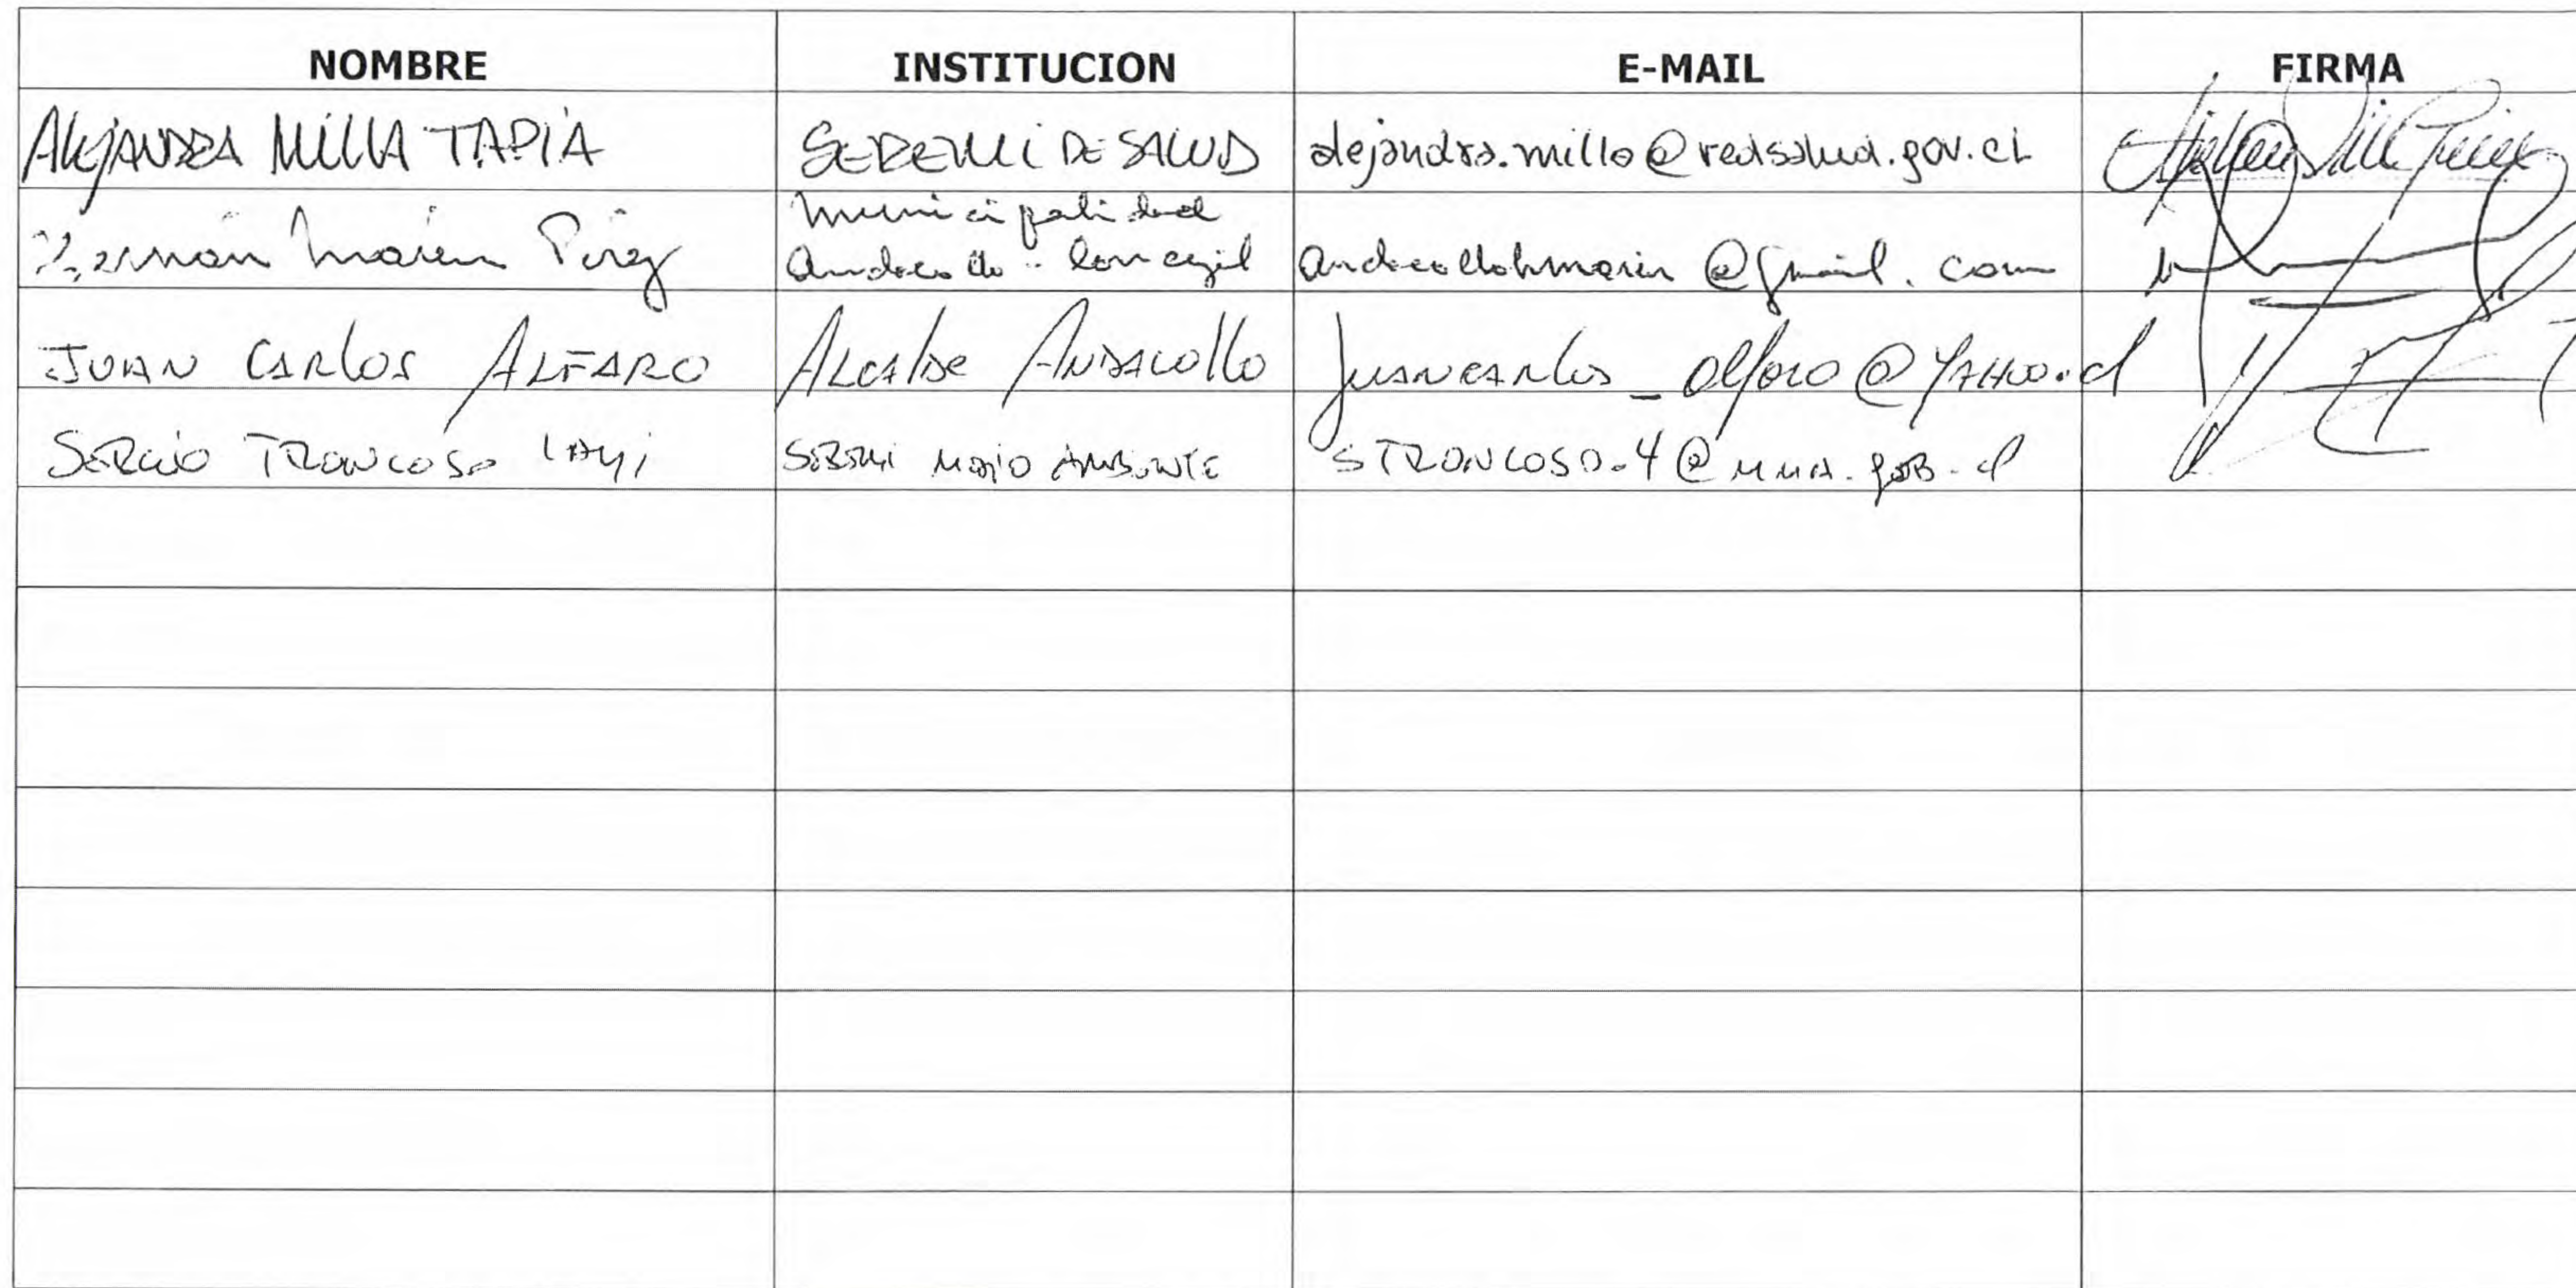 NOMBRE INSTITUCION E-MAIL FIRMA
ALEJANDRA MILLA TAPIA SEREMI DE SALUD alejandra.milla@redsalud.gov.cl
Municipalidad
Hernán Marín Pérez Andacollo - Concejal andacollohmarin@gmail.com
JUAN CARLOS ALFARO ALCALDE ANDACOLLO juancarlos_alfaro@yahoo.cl
SERGIO TRONCOSO SEREMI MEDIO AMBIENTE STRONCOSO.4@MMA.gob.cl